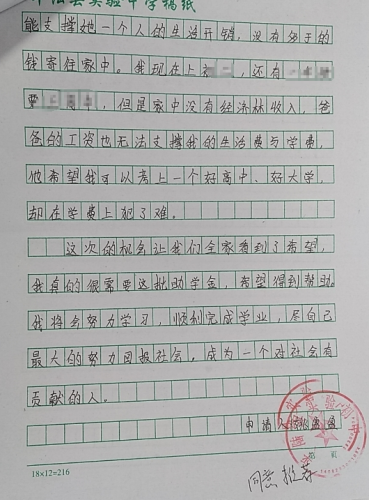 县实验中学稿纸
能支撑她一个人的生活开销，没有多于的
钱寄任家中。我现在上初二，还有一
要上，但是家中没有经济林收入，爸
爸的工资也无法支撑我的生活费与学费，
他希望我可以考上一个好高中、好大学，
却在学费上犯了难。
这次的机会让我们全家看到了希望，
我真的很需要这批助学金，希望得到帮助。
我将会努力学习，顺利完成学业，尽自己
最大的努力回报社会，成为一个对社会有
贡献的人。
申请人
第 页
18×12=216
同意推荐